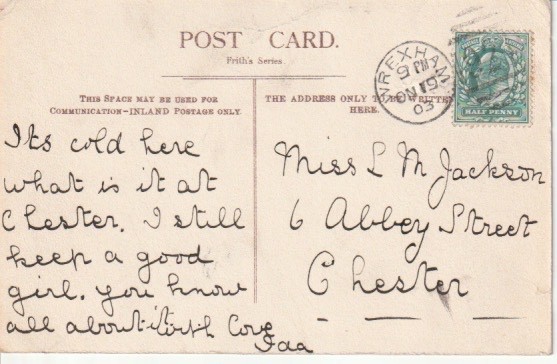 POST CARD.
Frith's Series.
THIS SPACE MAY BE USED FOR
COMMUNICATION-INLAND POSTAGE ONLY.
THE ADDRESS ONLY TO BE WRITTEN
HERE.
WREXHAM
NO 19
03
HALF PENNY
Its cold here
what is it at
Chester. I still
keep a good
girl. you know
all about it with
Miss L M Jackson
6 Abbey Street
Chester